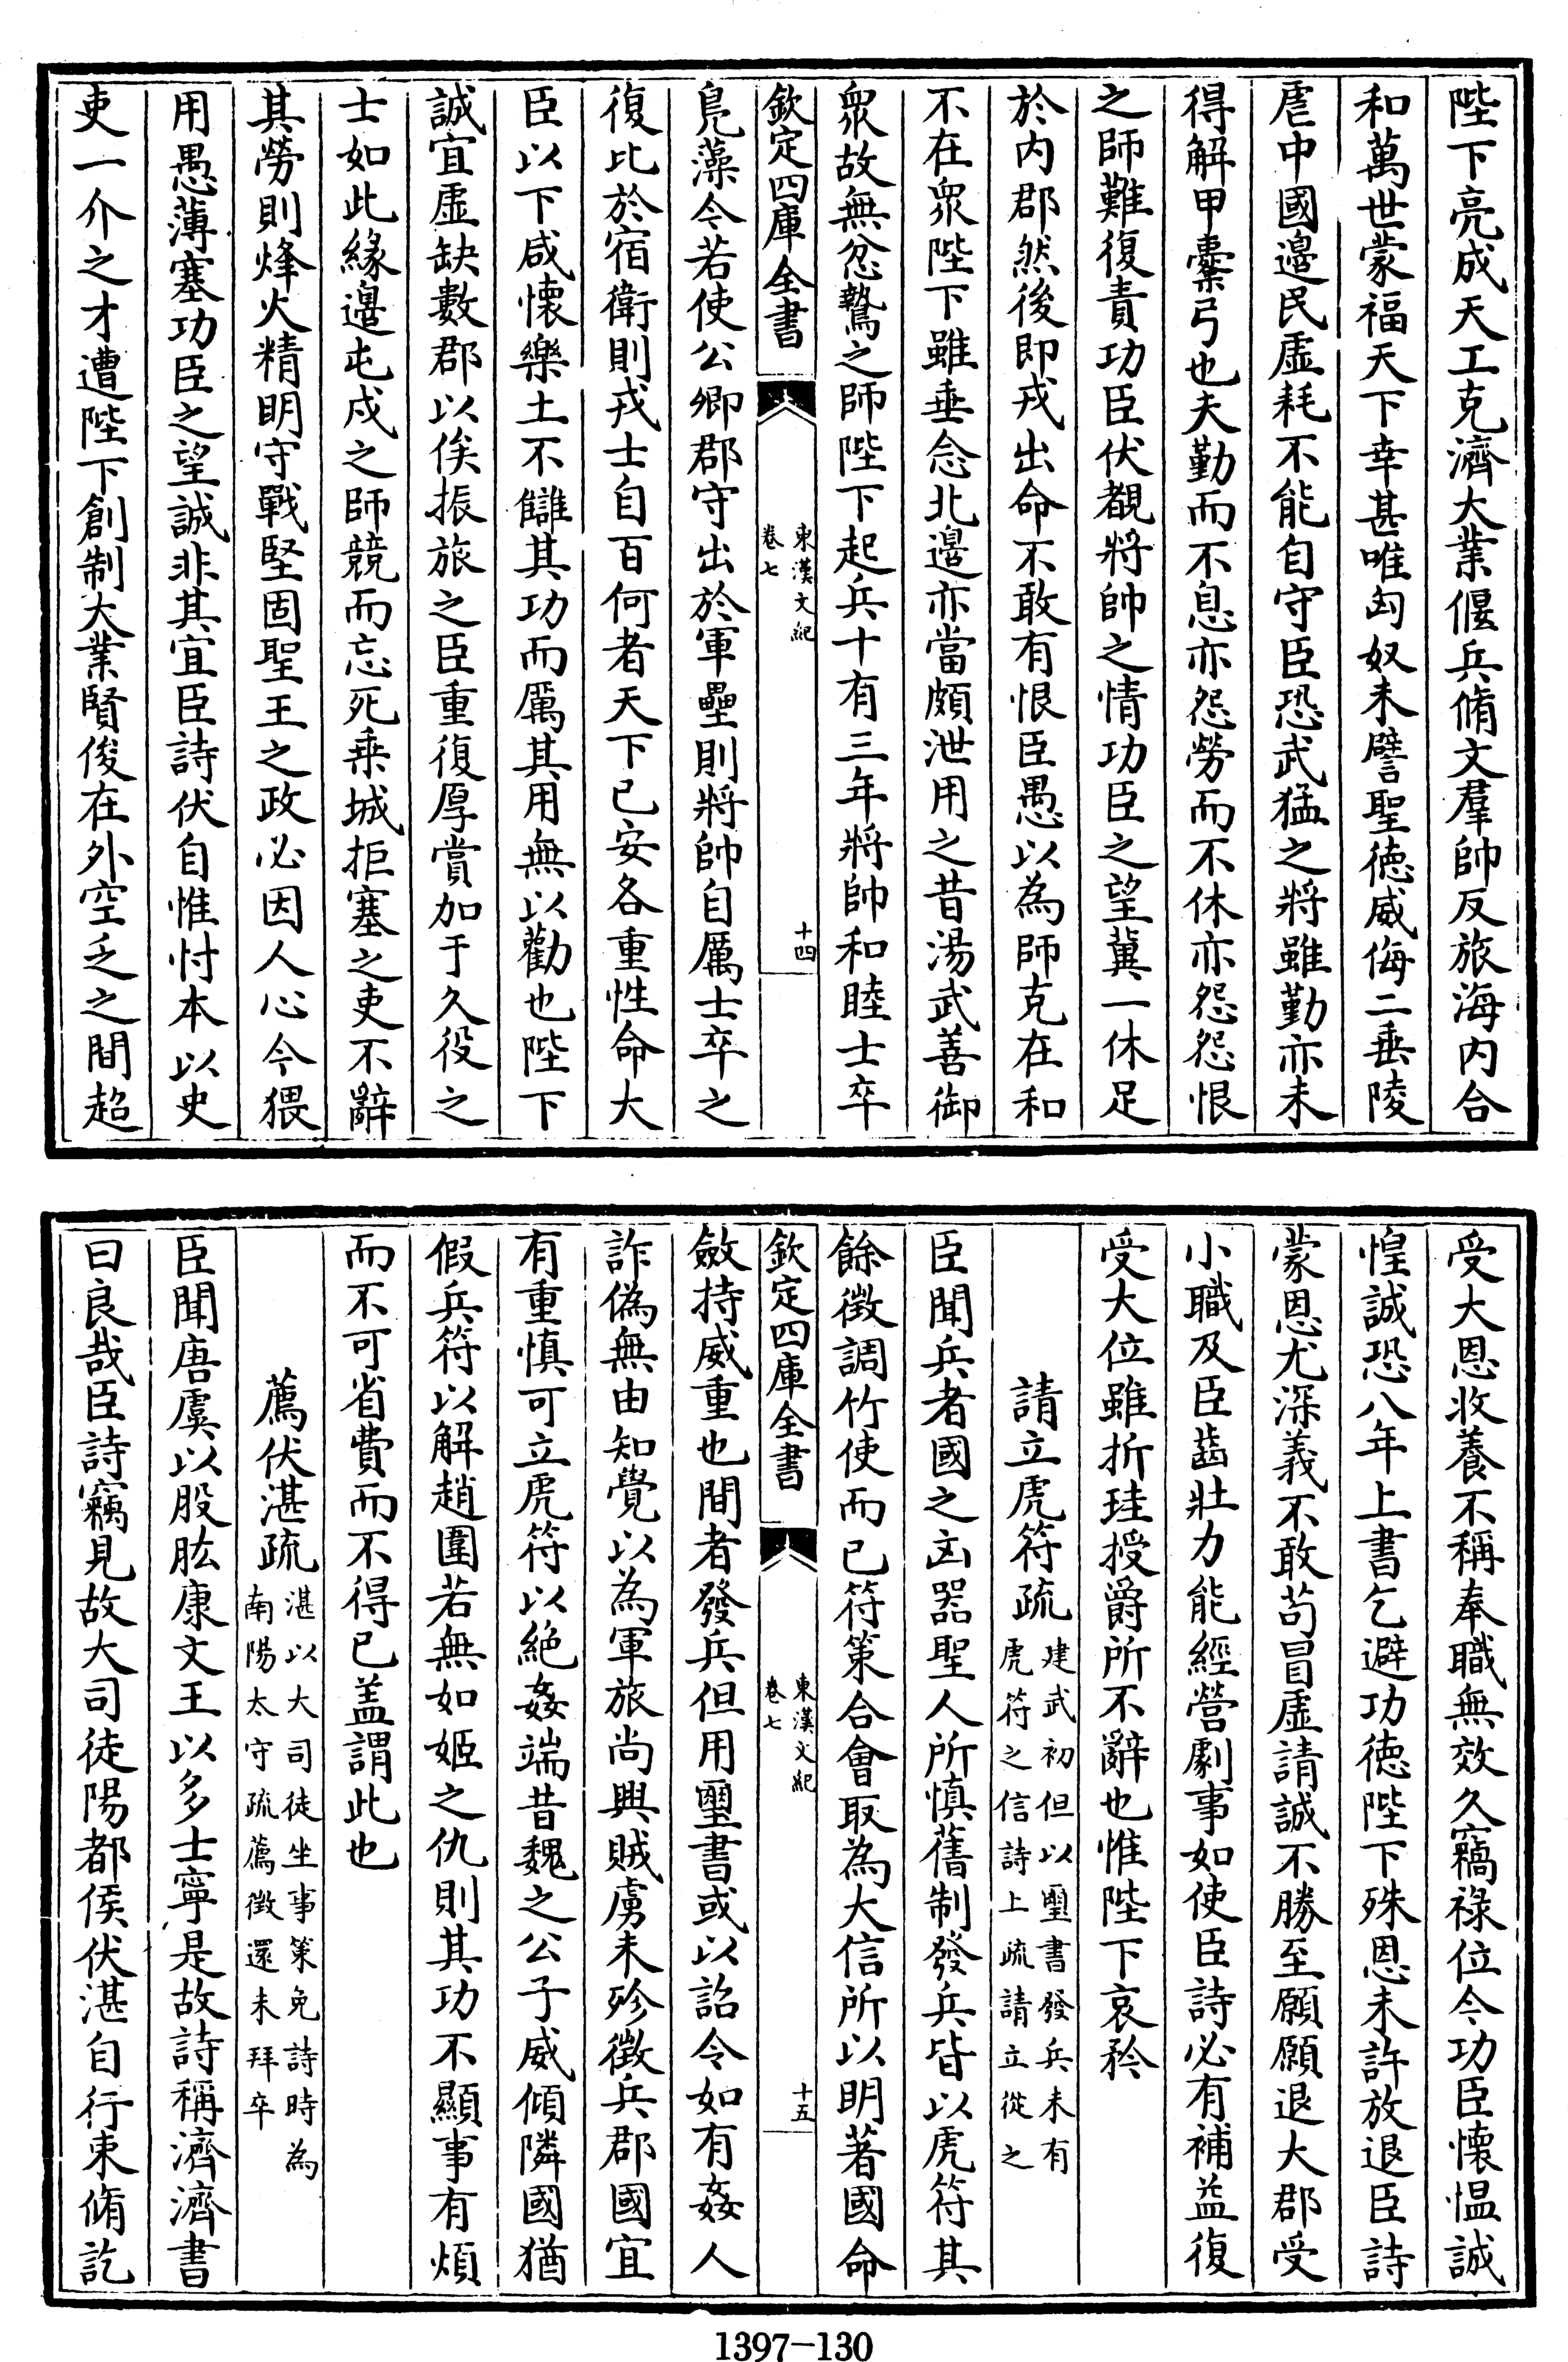 陛下亮成天工克濟大業偃兵脩文羣帥反旅海内合
和萬世蒙福天下幸甚唯匈奴未譬聖徳威侮二垂陵
虐中國邉民虛耗不能自守臣恐武猛之將雖勤亦未
得解甲櫜弓也夫勤而不息亦怨勞而不休亦怨怨恨
之師難復責功臣伏覩將帥之情功臣之望冀一休足
於内郡然後即戎出命不敢有恨臣愚以為師克在和
不在衆陛下雖垂念北邉亦當頗泄用之昔湯武善御
衆故無忿鷙之師陛下起兵十有三年將帥和睦士卒
欽定四庫全書
東漢文紀
卷七
十四
鳬藻今若使公卿郡守出於軍壘則將帥自厲士卒之
復比於宿衛則戎士自百何者天下已安各重性命大
臣以下咸懷樂土不讎其功而厲其用無以勸也陛下
誠宜虛缺數郡以俟振旅之臣重復厚賞加于久役之
士如此緣邉屯戍之師競而忘死乗城拒塞之吏不辭
其勞則烽火精明守戰堅固聖王之政必因人心今猥
用愚薄塞功臣之望誠非其宜臣詩伏自惟忖本以史
吏一介之才遭陛下創制大業賢俊在外空乏之間超
受大恩收養不稱奉職無效久竊祿位令功臣懷愠誠
惶誠恐八年上書乞避功徳陛下殊恩未許放退臣詩
蒙恩尤深義不敢苟冒虛請誠不勝至願願退大郡受
小職及臣齒壯力能經營劇事如使臣詩必有補益復
受大位雖折珪授爵所不辭也惟陛下哀矜
請立虎符疏
建武初但以璽書發兵未有
虎符之信詩上疏請立從之
臣聞兵者國之凶器聖人所慎舊制發兵皆以虎符其
餘徴調竹使而已符策合會取為大信所以明著國命
欽定四庫全書
東漢文紀
卷七
十五
斂持威重也間者發兵但用璽書或以詔令如有姦人
詐偽無由知覺以為軍旅尚興賊虜未殄徴兵郡國宜
有重慎可立虎符以絶姦端昔魏之公子威傾隣國猶
假兵符以解趙圍若無如姬之仇則其功不顯事有煩
而不可省費而不得已盖謂此也
薦伏湛疏
湛以大司徒坐事策免詩時為
南陽太守疏薦徴還未拜卒
臣聞唐虞以股肱康文王以多士寧是故詩稱濟濟書
曰良哉臣詩竊見故大司徒陽都侯伏湛自行束脩訖
1397-130